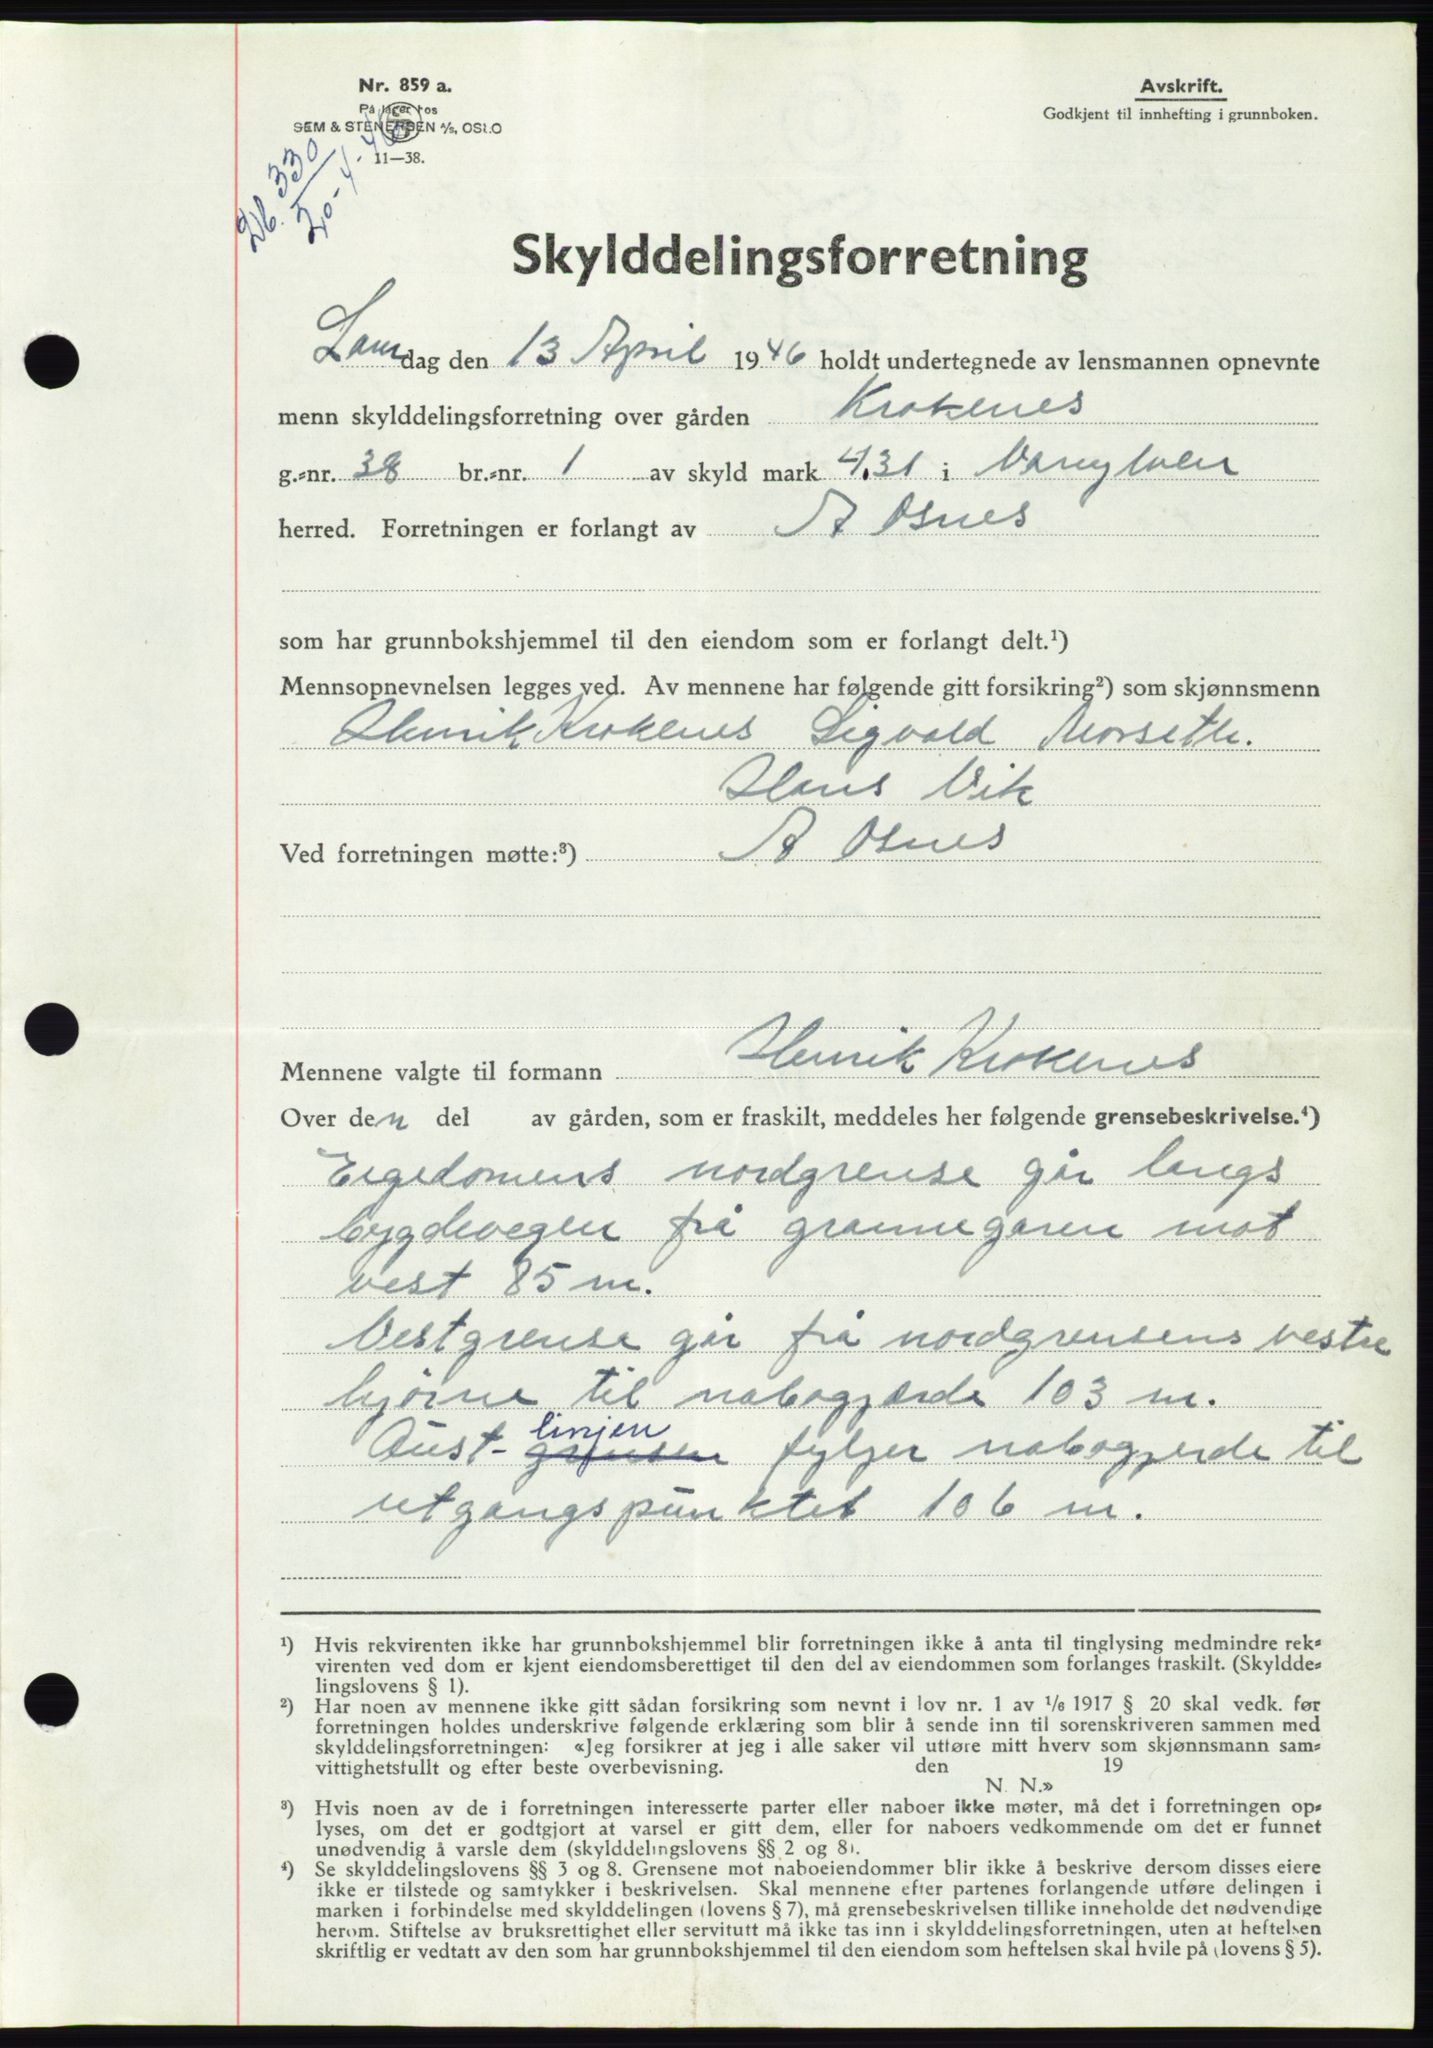 Nr. 859 a.
På lager hos
SEM & STENERSEN A/S, OSLO
11—38.
Avskrift.
Godkjent til innhefting i grunnboken.
Db. 330
20-4-46
Skylddelingsforretning
Laurdag den 13 April 1946 holdt undertegnede av lensmannen opnevnte
menn skylddelingsforretning over gården Krokenes
g.=nr. 38 br.=nr. 1 av skyld mark 4.31 i Vanylven
herred. Forretningen er forlangt av A Osnes
som har grunnbokshjemmel til den eiendom som er forlangt delt.¹)
Mennsopnevnelsen legges ved. Av mennene har følgende gitt forsikring²) som skjønnsmenn
Henrik Krokenes Sigvald Norseth.
Hans Vik
Ved forretningen møtte:³) A Osnes
Mennene valgte til formann Henrik Krokenes
Over den del av gården, som er fraskilt, meddeles her følgende grensebeskrivelse.⁴)
Eigedomens nordgrense går langs
bygdevegen frå grannegaren mot
vest 85 m.
Vestgrense går frå nordgrensens vestre
hjørne til nabogjærde 103 m.
linjen
Aust- grensen fylgjer nabogjerde til
utgangspunktet 106 m.
¹) Hvis rekvirenten ikke har grunnbokshjemmel blir forretningen ikke å anta til tinglysing medmindre rek=
virenten ved dom er kjent eiendomsberettiget til den del av eiendommen som forlanges fraskilt. (Skyldde=
lingslovens § 1).
²) Har noen av mennene ikke gitt sådan forsikring som nevnt i lov nr. 1 av 1/6 1917 § 20 skal vedk. før
forretningen holdes underskrive følgende erklæring som blir å sende inn til sorenskriveren sammen med
skylddelingsforretningen: «Jeg forsikrer at jeg i alle saker vil utføre mitt hverv som skjønnsmann sam=
vittighetsfullt og efter beste overbevisning. den 19
N. N.»
³) Hvis noen av de i forretningen interesserte parter eller naboer ikke møter, må det i forretningen op=
lyses, om det er godtgjort at varsel er gitt dem, eller for naboers vedkommende om det er funnet
unødvendig å varsle dem (skylddelingslovens §§ 2 og 8).
⁴) Se skylddelingslovens §§ 3 og 8. Grensene mot naboeiendommer blir ikke å beskrive dersom disses eiere
ikke er tilstede og samtykker i beskrivelsen. Skal mennene efter partenes forlangende utføre delingen i
marken i forbindelse med skylddelingen (lovens § 7), må grensebeskrivelsen tillike inneholde det nødvendige
herom. Stiftelse av bruksrettighet eller servitutt må ikke tas inn i skylddelingsforretningen, uten at heftelsen
skriftlig er vedtatt av den som har grunnbokshjemmel til den eiendom som heftelsen skal hvile på (lovens § 5).